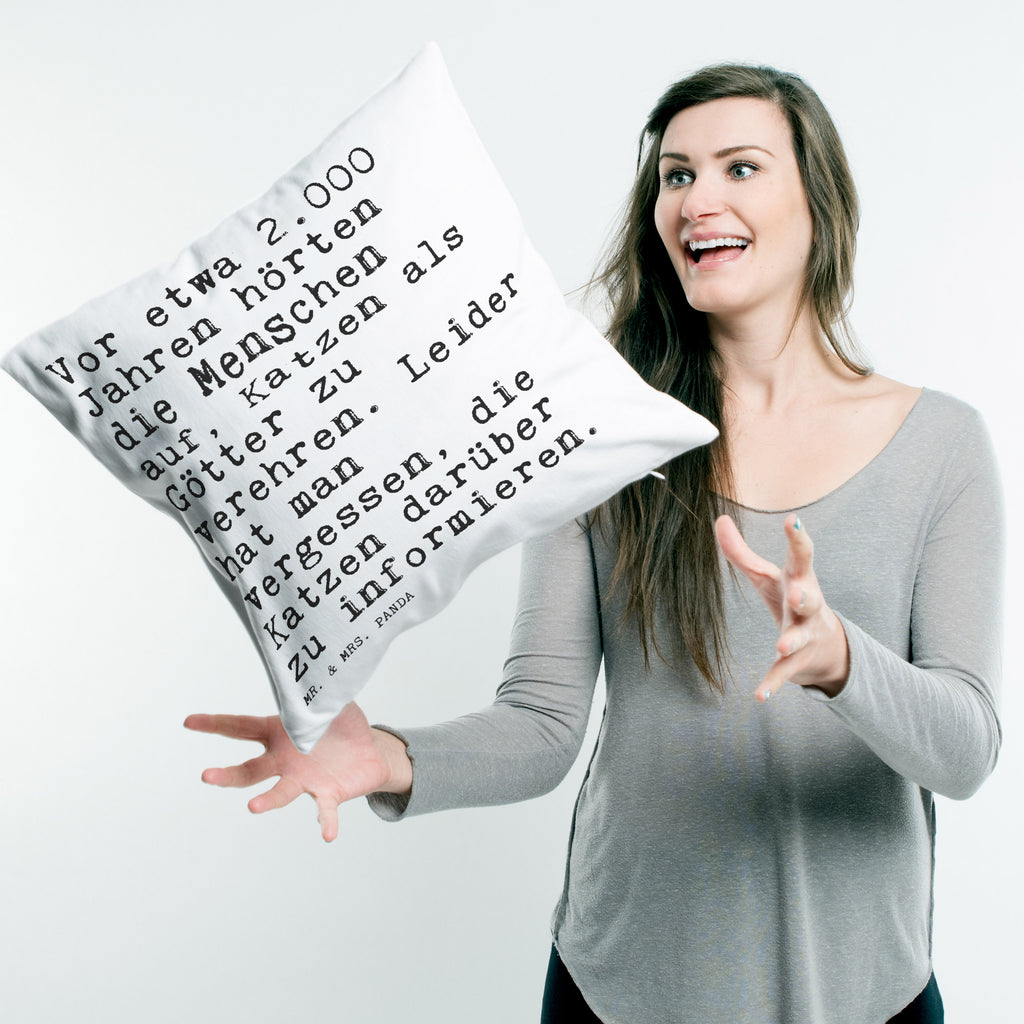 Vor etwa 2.000
Jahren hörten
die Menschen
auf, Katzen als
Götter zu
verehren. Leider
hat man
vergessen, die
Katzen darüber
zu informieren.
MR. & MRS. PANDA